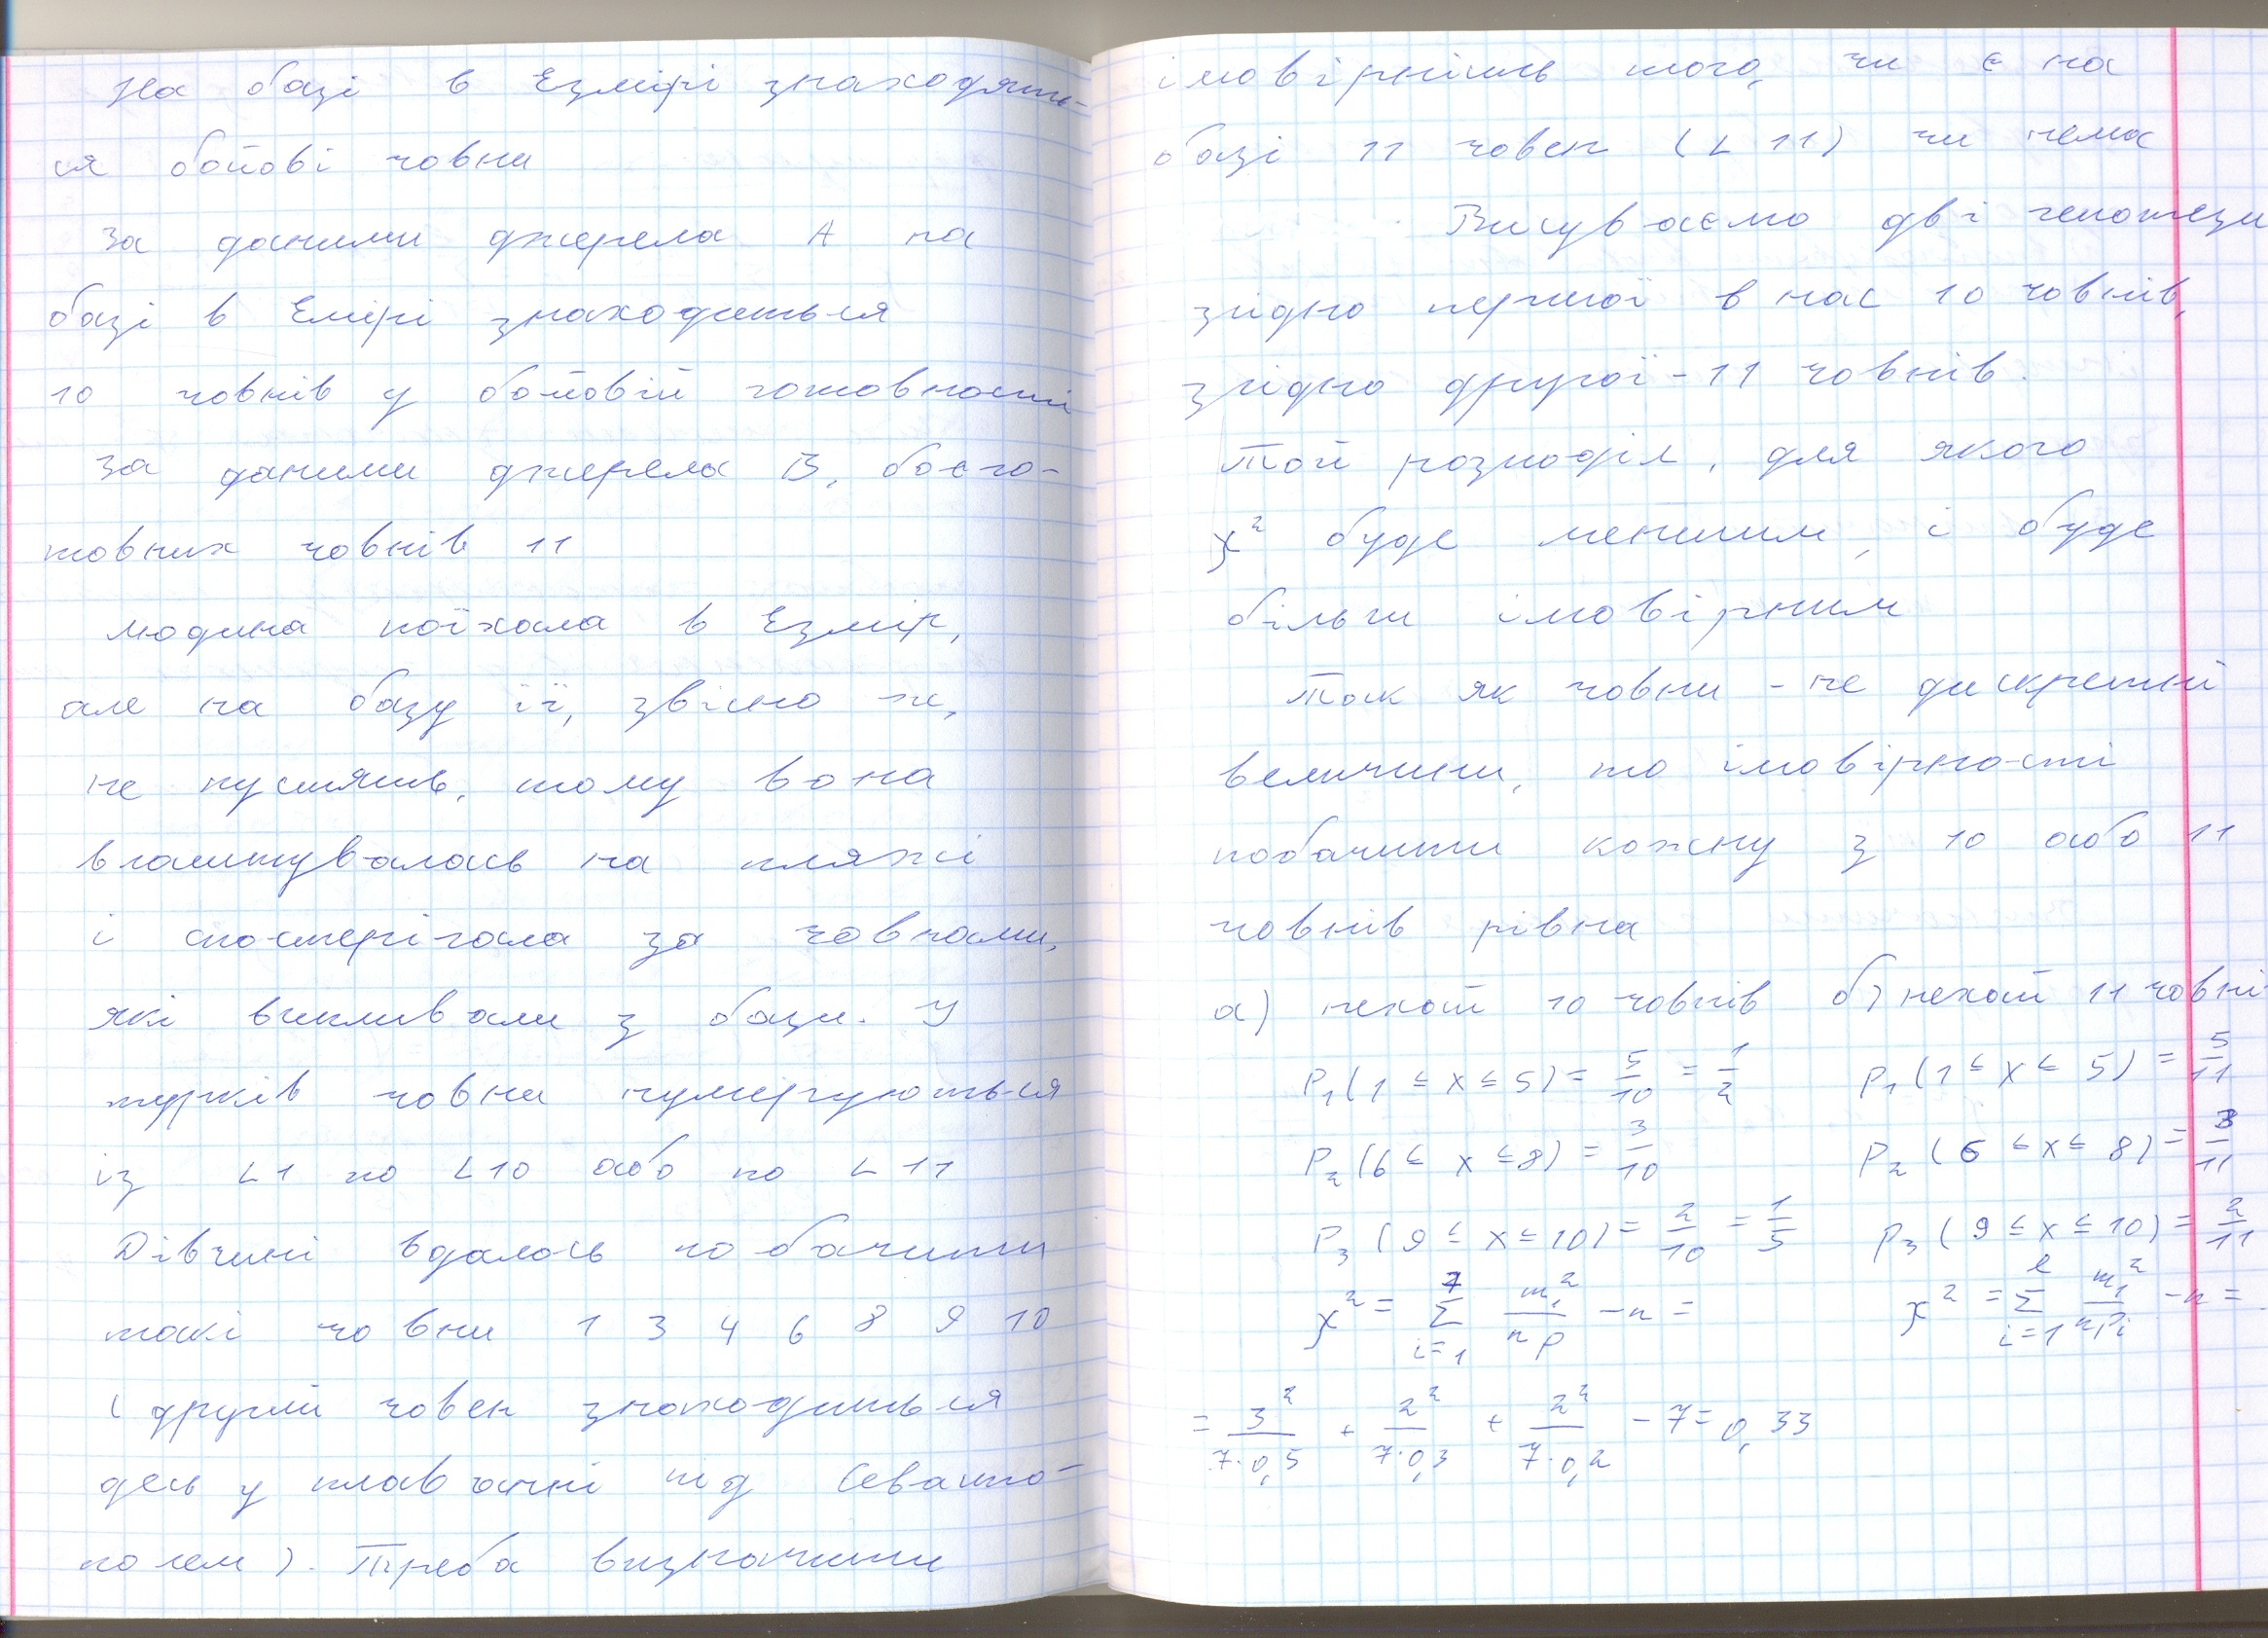 На базі в Езмірі знаходять-
ся бойові човни
За даними джерела А на
базі в Емірі знаходиться
10 човнів у бойовій готовності
За даними джерела В, боєго-
товних човнів 11
Людина поїхала в Езмір,
але на базу її, звісно ж,
не пустять, тому вона
влаштувалась на пляжі
і спостерігала за човнами,
які випливали з бази. У
турків човни нумеруються
із L1 по L10 або по L11
Дівчині вдалось побачити
такі човни 1 3 4 6 8 9 10
(другий човен знаходиться
десь у плаванні під Севасто-
полем). Треба визначити
імовірність того, чи є на
базі 11 човен (L 11) чи нема
Висуваємо дві гепотези
згідно першої в нас 10 човнів,
згідно другої - 11 човнів.
Той розподіл, для якого
χ² буде меншим, і буде
більш імовірним
Так як човни - це дискретні
величини, то імовірності
побачити кожну з 10 або 11
човнів рівна
а) нехай 10 човнів б) нехай 11 човні
P₁(1 ≤ x ≤ 5) = 5/10 = 1/2 P₁(1 ≤ x ≤ 5) = 5/11
P₂(6 ≤ x ≤ 8) = 3/10 P₂(6 ≤ x ≤ 8) = 3/11
P₃(9 ≤ x ≤ 10) = 2/10 = 1/5 P₃(9 ≤ x ≤ 10) = 2/11
χ² = Σ_{i=1}^{7} m₁²/np - n = χ² = Σ_{i=1}^{l} m₁²/npᵢ - n =
= 3²/7·0,5 + 2²/7·0,3 + 2²/7·0,2 - 7 = 0,33